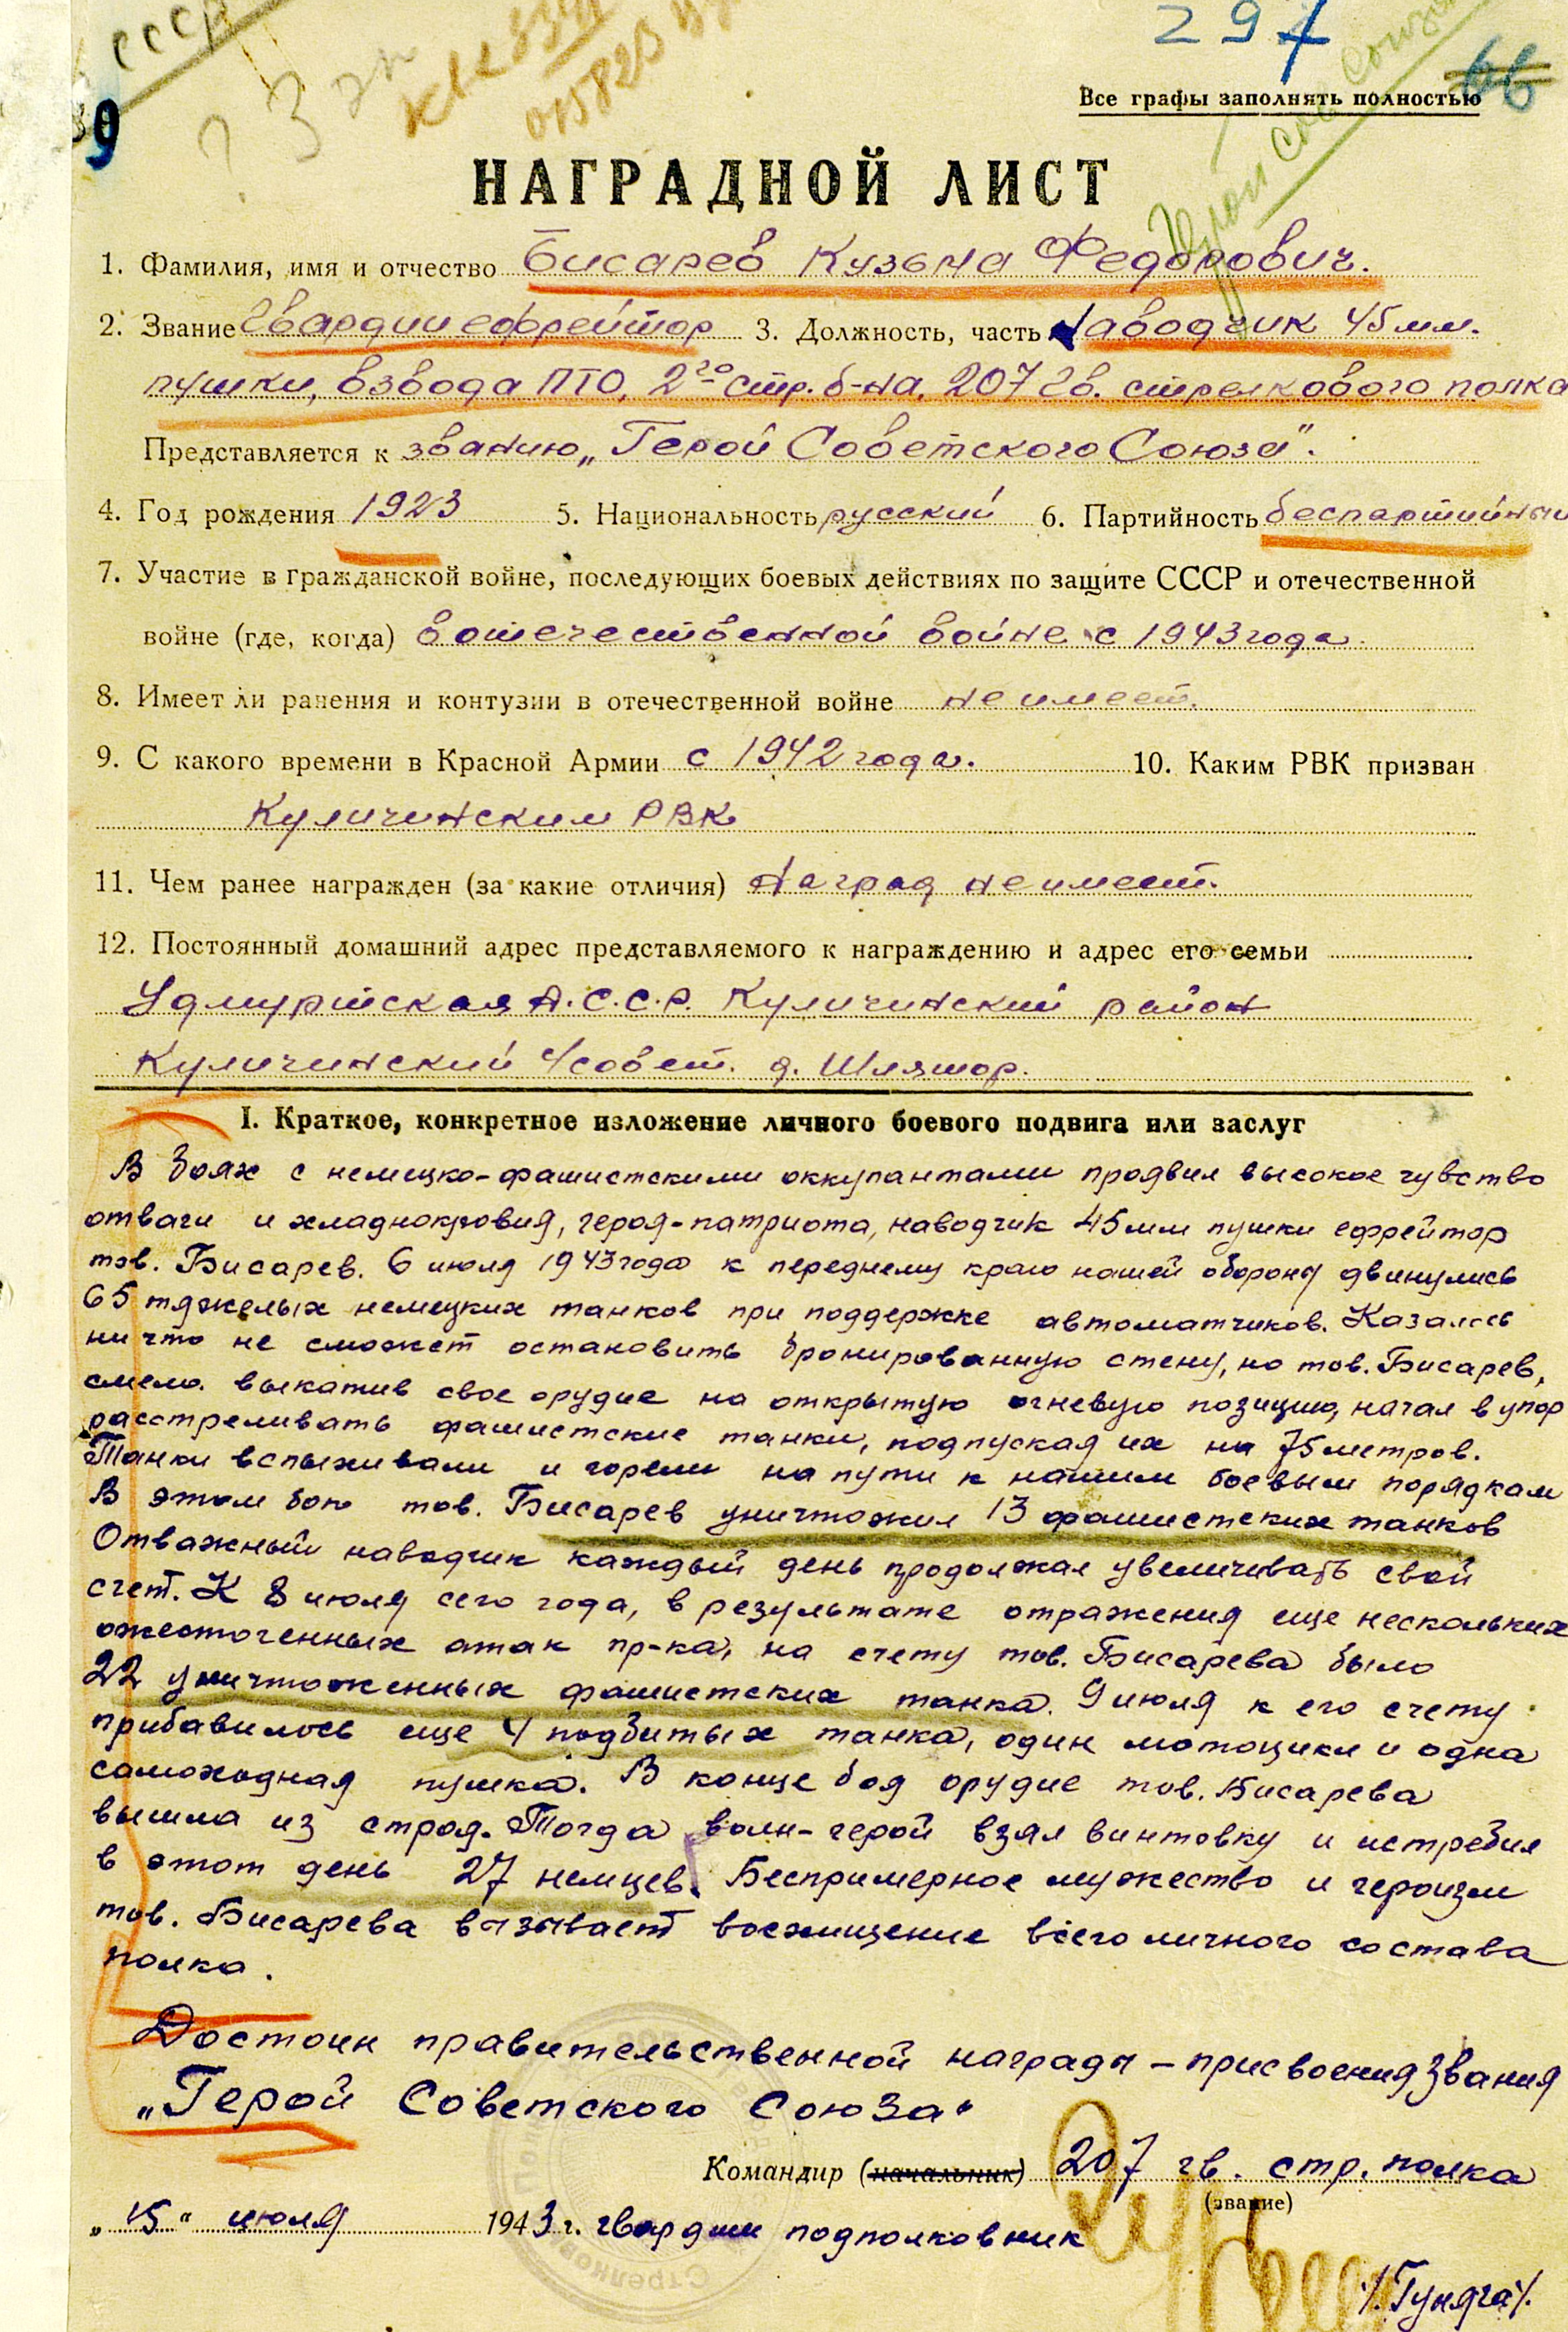 СССР
297
66
9
Все графы заполнять полностью
Герой Сов Союза
НАГРАДНОЙ ЛИСТ
1. Фамилия, имя и отчество Бисарев Кузьма Федорович.
2. Звание Гвардии ефрейтор 3. Должность, часть Наводчик 45 мм.
пушки, взвода ПТО, 2го стр. б-на. 207 Гв. стрелкового полка
Представляется к званию „Герой Советского Союза".
4. Год рождения 1923 5. Национальность русский 6. Партийность беспартийный
7. Участие в гражданской войне, последующих боевых действиях по защите СССР и отечественной
войне (где, когда) в отечественной войне с 1943 года.
8. Имеет ли ранения и контузии в отечественной войне не имеет.
9. С какого времени в Красной Армии с 1942 года. 10. Каким РВК призван
Куличинским РВК
11. Чем ранее награжден (за какие отличия) Наград не имеет.
12. Постоянный домашний адрес представляемого к награждению и адрес его семьи
Удмуртская А.С.С.Р. Куличинский район
Куличинский с/совет. д. Шляшор.
I. Краткое, конкретное изложение личного боевого подвига или заслуг
В боях с немецко-фашистскими оккупантами проявил высокое чувство
отваги и хладнокровия, героя-патриота, наводчик 45 мм пушки ефрейтор
тов. Бисарев. 6 июля 1943 года к переднему краю нашей обороны двинулись
65 тяжелых немецких танков при поддержке автоматчиков. Казалось
ничто не сможет остановить бронированную стену, но тов. Бисарев,
смело выкатив свое орудие на открытую огневую позицию, начал в упор
расстреливать фашистские танки, подпуская их на 75 метров.
Танки вспыхивали и горели на пути к нашим боевым порядкам
В этом бою тов. Бисарев уничтожил 13 фашистских танков
Отважный наводчик каждый день продолжал увеличивать свой
счет. К 8 июля сего года, в результате отражения еще нескольких
ожесточенных атак пр-ка, на счету тов. Бисарева было
22 уничтоженных фашистских танка. 9 июля к его счету
прибавилось еще 4 подбитых танка, один мотоцикл и одна
самоходная пушка. В конце боя орудие тов. Бисарева
вышла из строя. Тогда воин-герой взял винтовку и истребил
в этот день 27 немцев. Беспримерное мужество и героизм
тов. Бисарева вызывает восхищение всего личного состава
полка.
Достоин правительственной награды – присвоения звания
„Герой Советского Союза"
Командир (начальник) 207 гв. стр. полка
(звание)
„15" июля 1943 г. гвардии подполковник
/Гуняга/.